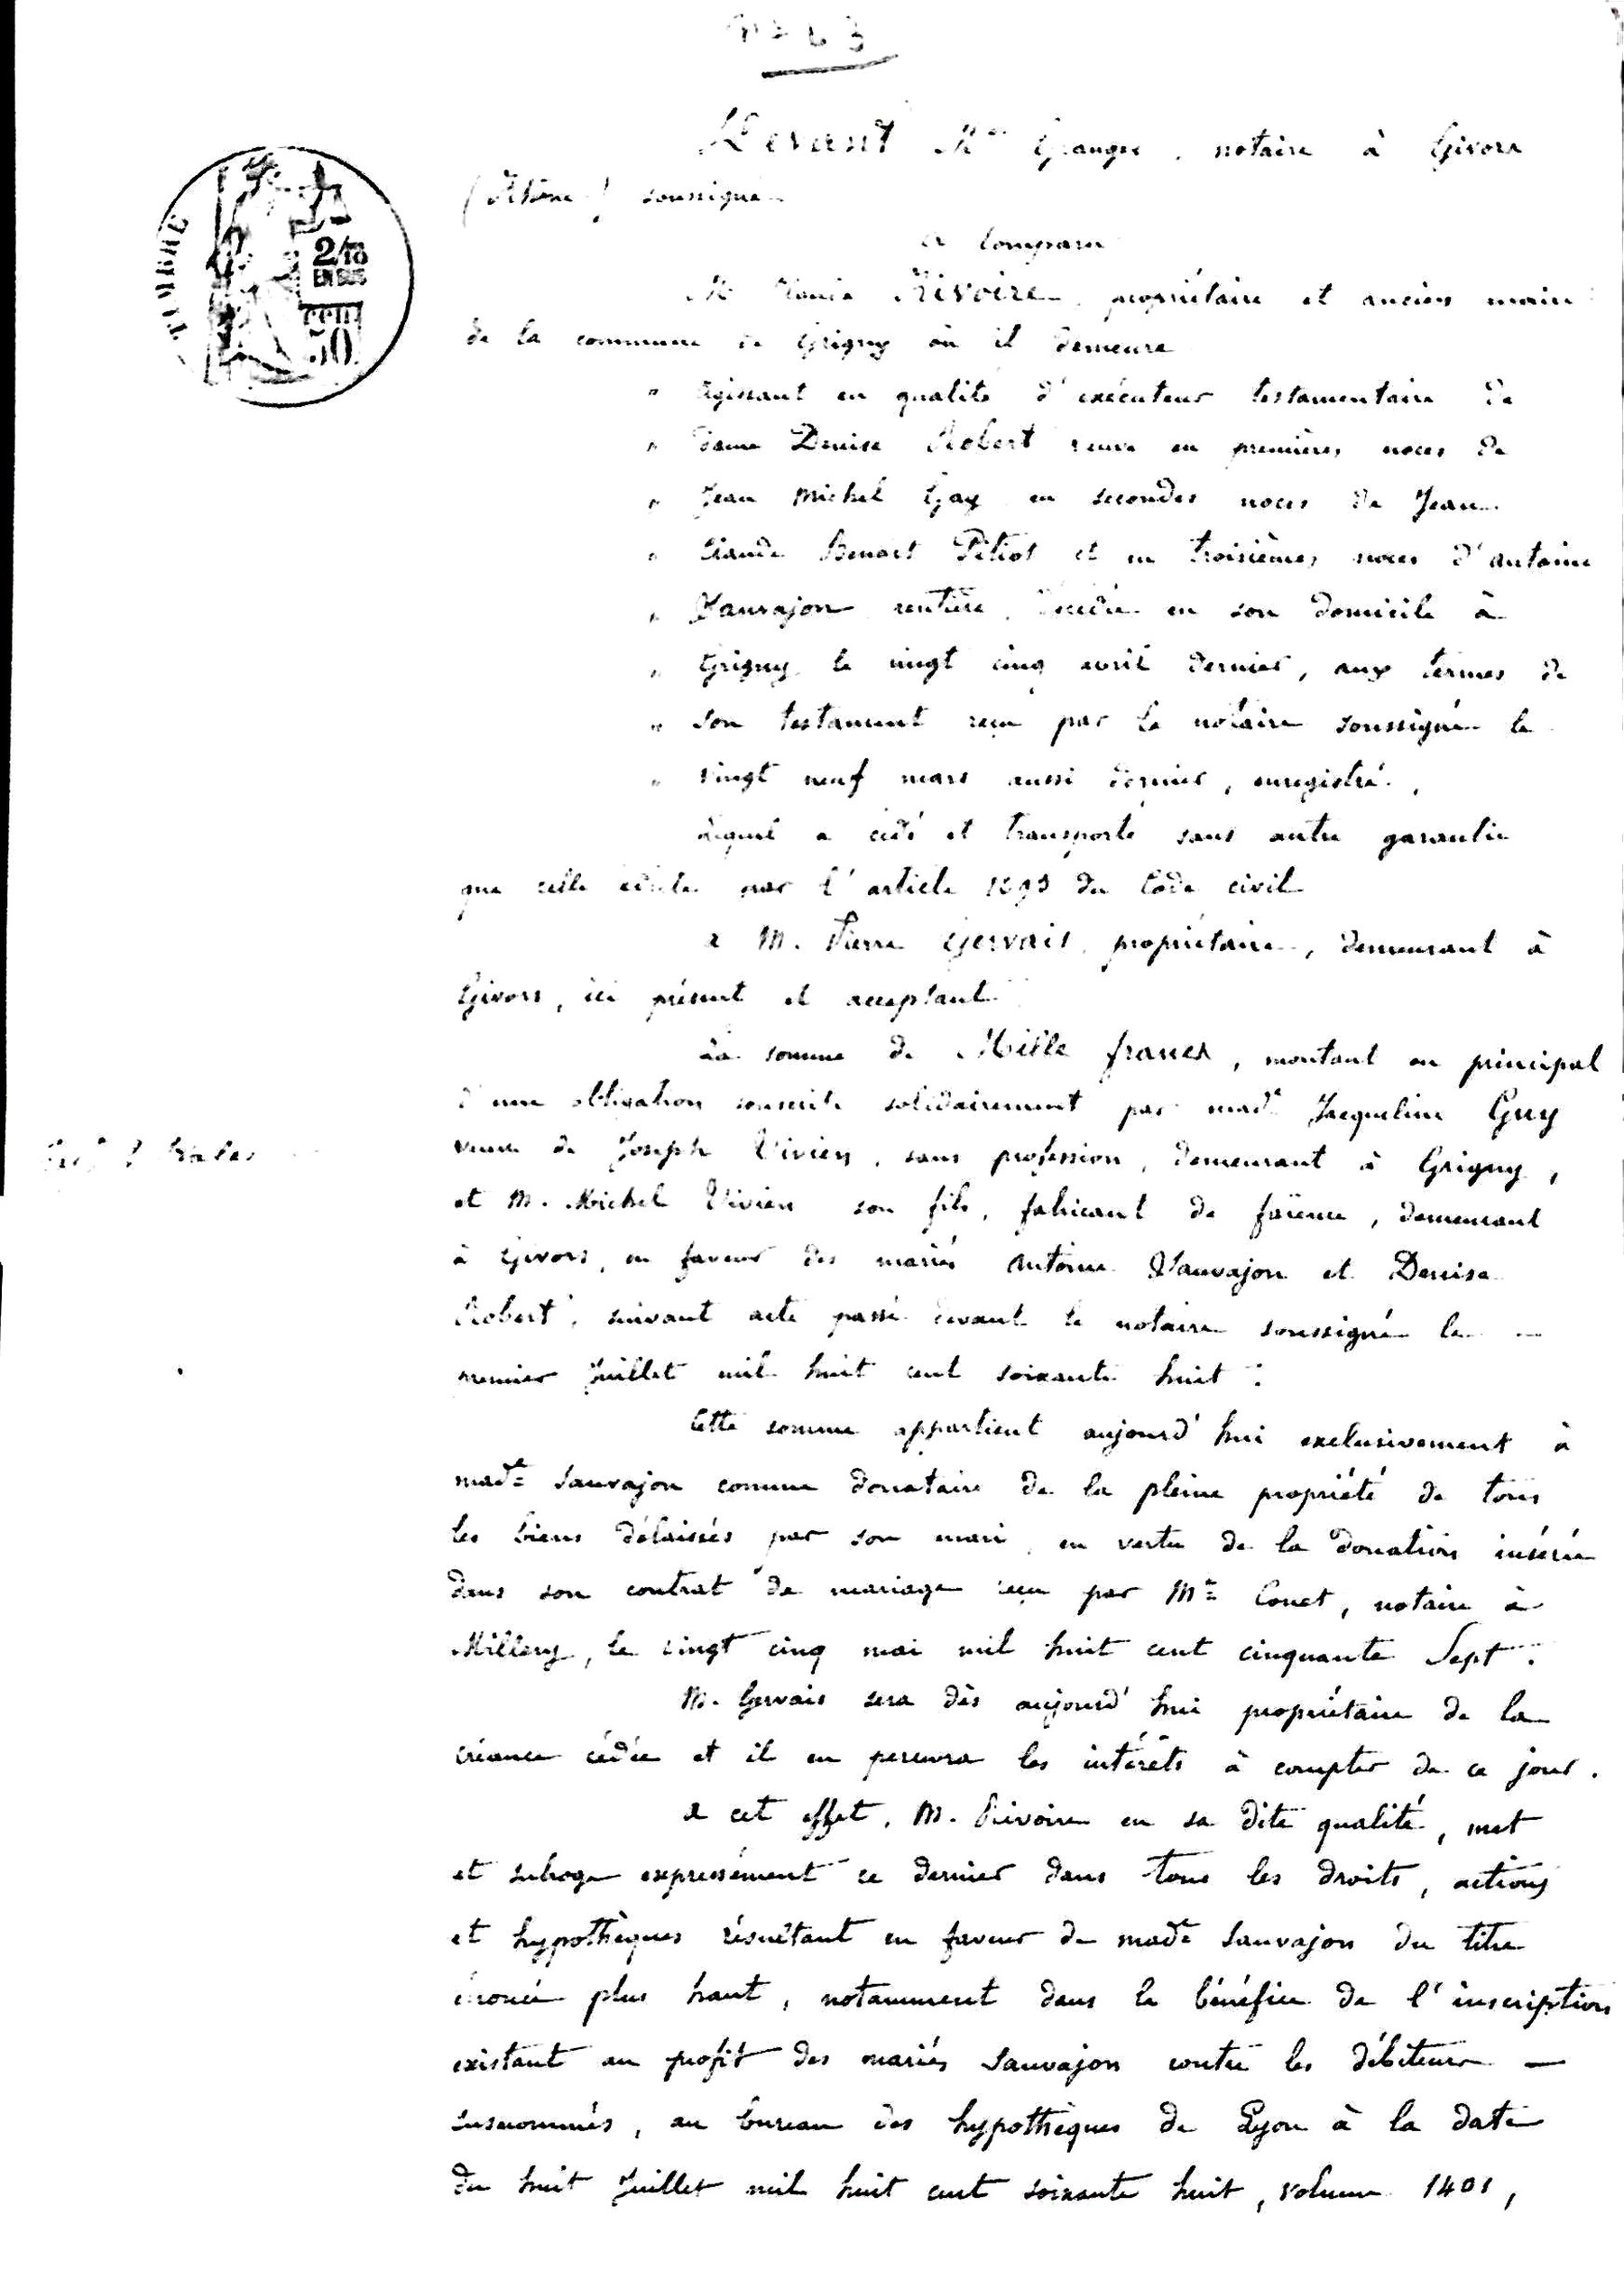 Devant Me Granger, notaire à Givors
(Rhône) soussigné
a comparu
M. Rivoire propriétaire et ancien maire
de la commune de Grigny où il demeure
" agissant en qualité d'exécuteur testamentaire de
" dame Denise Robert veuve en premières noces de
" Jean Michel Gay en secondes noces de Jean
" Claude Benoit Pitiot et en troisièmes noces d'antoine
" Sauvajon rentière, décédée en son domicile à
" Grigny le vingt cinq avril dernier, aux termes de
" son testament reçu par le notaire soussigné le
" vingt neuf mars aussi dernier, enregistré.,
Lequel a cédé et transporté sans autre garantie
que celle édictée par l'article 1693 du Code civil
a M. Pierre Gervais, propriétaire, demeurant à
Givors, ici présent et acceptant
La somme de Mille francs, montant en principal
d'une obligation souscrite solidairement par made Jacqueline Guy
veuve de Joseph Vivien, sans profession, demeurant à Grigny,
et M. Michel Vivien son fils, fabricant de faïence, demeurant
à Givors, en faveur des mariés Antoine Sauvajon et Denise
Robert, suivant acte passé devant le notaire soussigné le
premier Juillet mil huit cent soixante huit :
Cette somme appartient aujourd'hui exclusivement à
made Sauvajon comme donataire de la pleine propriété de tous
les biens délaissés par son mari, en vertu de la donation insérée
dans son contrat de mariage reçu par Me Conet, notaire à
Millery, le vingt cinq mai mil huit cent cinquante Sept.
M. Gervais sera dès aujourd'hui propriétaire de la
créance cédée et il en percevra les intérêts à compter de ce jour.
a cet effet, M. Rivoire en sa dite qualité, met
et subroge expressément ce dernier dans tous les droits, actions
et hypothèques résultant en faveur de made Sauvajon du titre
énoncé plus haut, notamment dans le bénéfice de l'inscription
existant au profit des mariés Sauvajon contre les débiteurs —
susnommés, au bureau des hypothèques de Lyon à la date
du huit Juillet mil huit cent soixante huit, volume 1401,
TIMBRE
2/10
EN SUS
50